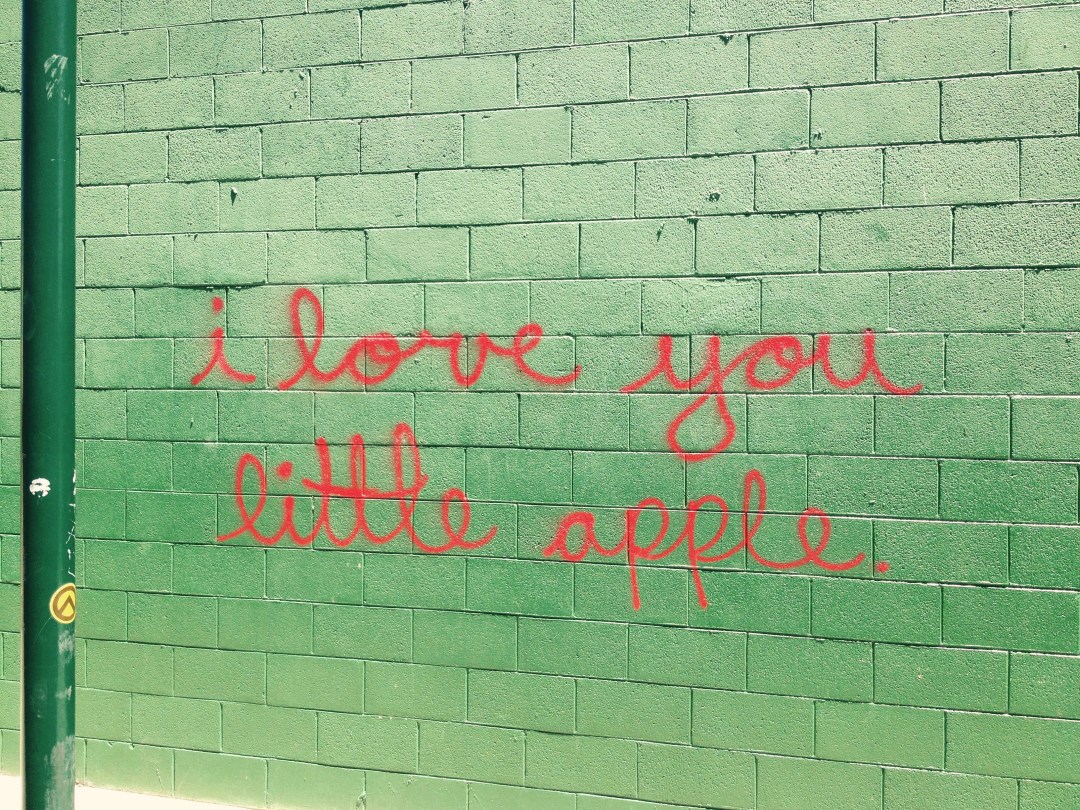 i love you
little apple.